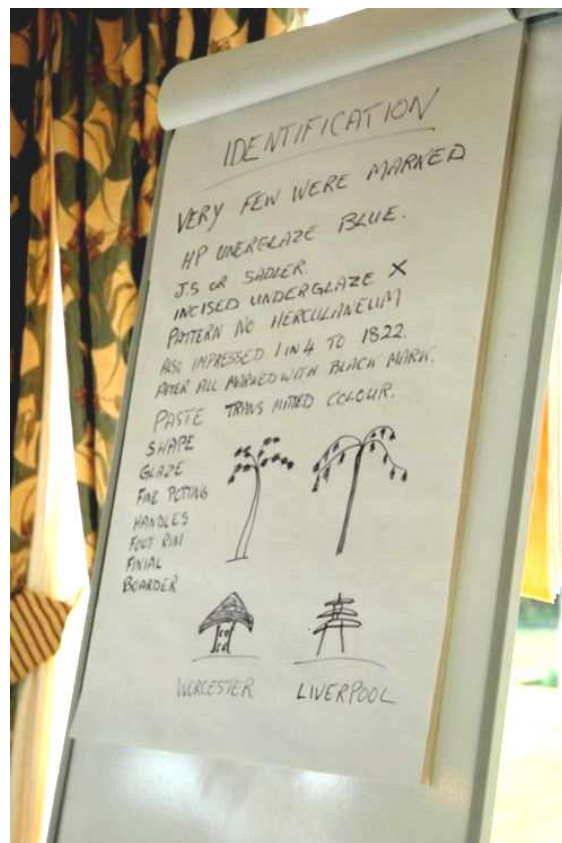 IDENTIFICATION
VERY FEW WERE MARKED
HP UNERGLAZE BLUE.
J.S OR SADLER.
INCISED UNDERGLAZE X
PATTERN NO HERCULANEUM
ALSO IMPRESSED 1 IN 4 TO 1822.
AFTER ALL MARKED WITH BLACK MARK.
PASTE TRANS MITTED COLOUR.
SHAPE
GLAZE
FINE POTTING
HANDLES
FOOT RIM
FINIAL
BOARDER
WORCESTER LIVERPOOL